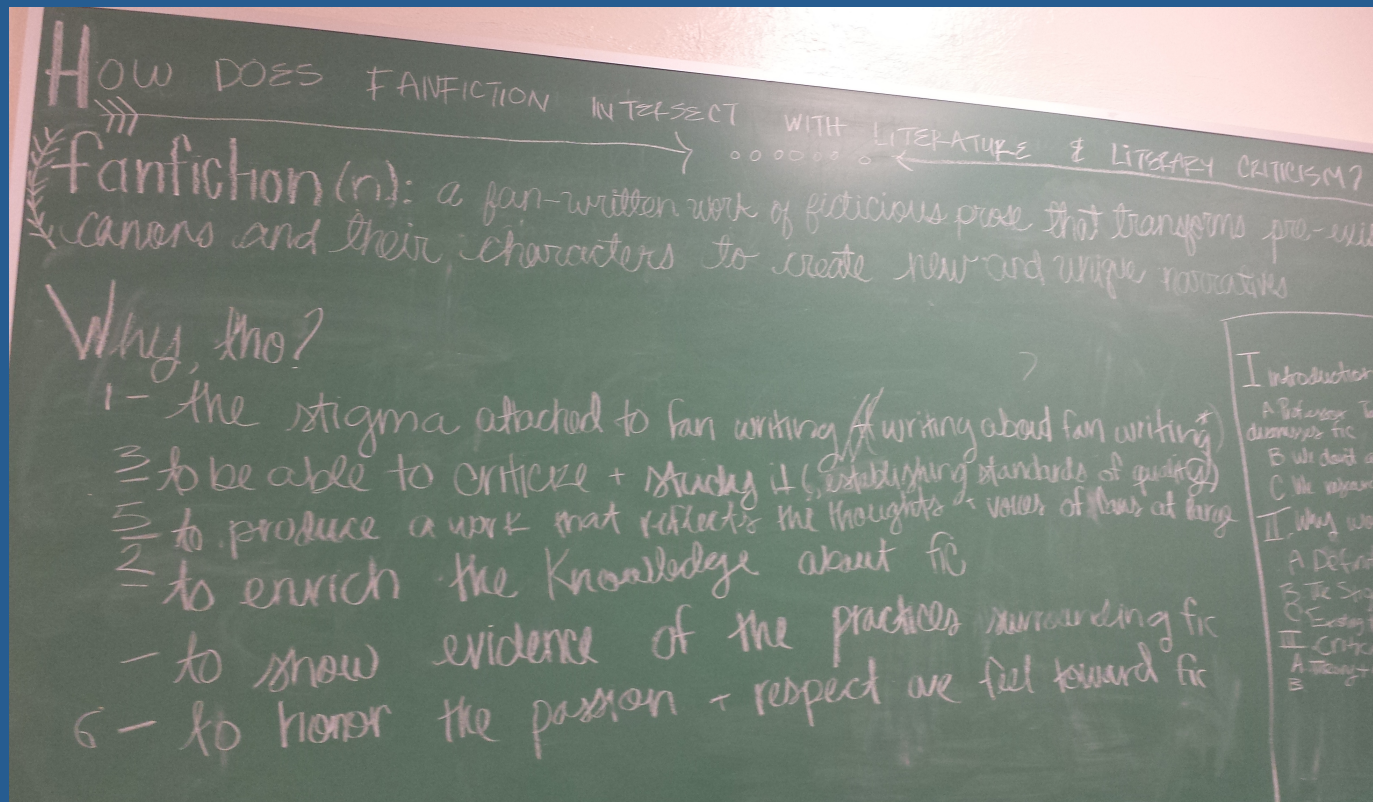 HOW DOES FANFICTION INTERSECT WITH LITERATURE & LITERARY CRITICISM?
fanfiction (n): a fan-written work of ficticious prose that transforms pre-exis
canons and their characters to create new and unique narratives
Why, tho?
1 - the stigma attached to fan writing // writing about fan writing*
3 - to be able to criticize + study it (establishing standards of quality)
5 - to produce a work that reflects the thoughts + voices of fans at large
2 - to enrich the knowledge about fic
- to show evidence of the practices surrounding fic
6 - to honor the passion + respect we feel toward fic
I Introduction
A Professor
fic
B We don't
C We
II Why
A Defin
B The Stig
C
II Critic
A
B